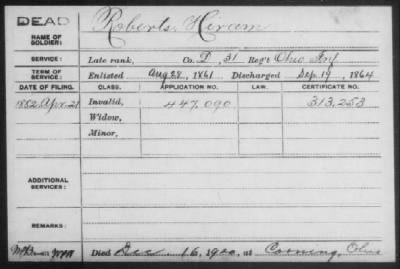 DEAD
NAME OF SOLDIER: Roberts, Hiram
SERVICE: Late rank, Co. D, 31 Reg't Ohio Inf
TERM OF SERVICE: Enlisted Aug 28, 1861 Discharged Sep. 19, 1864
DATE OF FILING. CLASS. APPLICATION NO. LAW. CERTIFICATE NO.
1882 Apr. 21 Invalid, 447,090 313,253
Widow,
Minor,
ADDITIONAL SERVICES:
REMARKS:
Died Dec 16, 1900, at Corning, Ohio